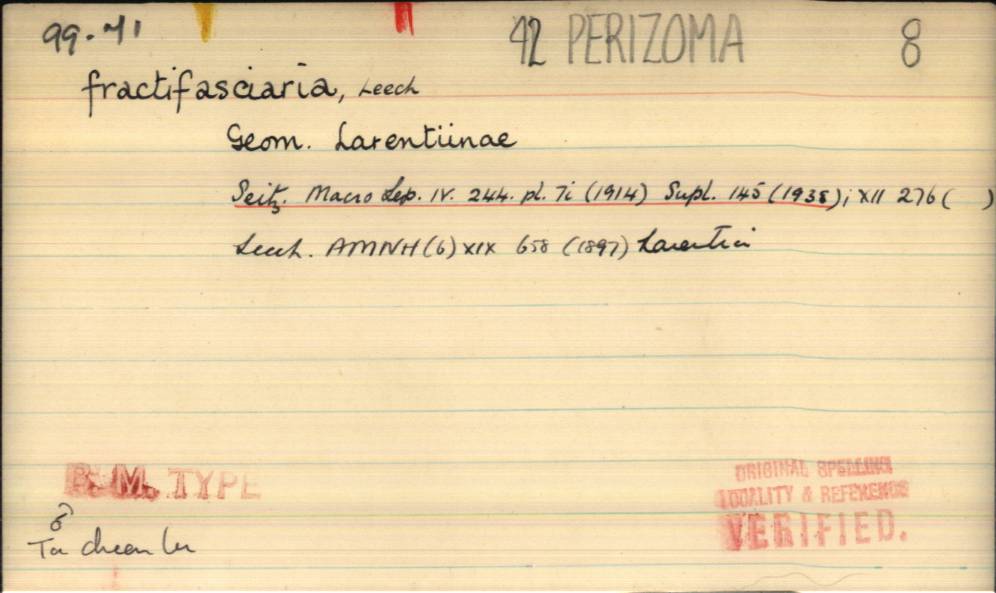 99.41 42 PERIZOMA 8
fractifasciaria, Leech
Geom. Larentiinae
Seitz. Macro Lep. IV. 244. pl. 7i (1914) Supl. 145 (1938); XII 276 ( )
Leech. AMNH (6) XIX 658 (1897) Larentia
B. M. TYPE
ORIGINAL SPELLING
LOCALITY & REFERENCE
VERIFIED.
♂
Ta chien lu